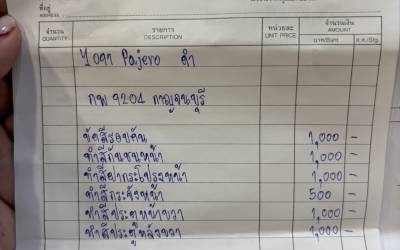 ที่อยู่
ADDRESS
จำนวน รายการ หน่วยละ จำนวนเงิน
QUANTITY DESCRIPTION UNIT PRICE AMOUNT
บาท(Baht) ส.ต.(Stg.)
Pajero ดำ
กพ 9204 กาญจนบุรี
ขัดสีรอบคัน 1,000 -
ทำสีกันชนหน้า 1,000 -
ทำสีฝากระโปรงหน้า 1,000 -
ทำสีกระจังหน้า 500 -
ทำสีประตูหน้าขวา 1,000 -
ทำสีประตูหลังขวา 1,000 -